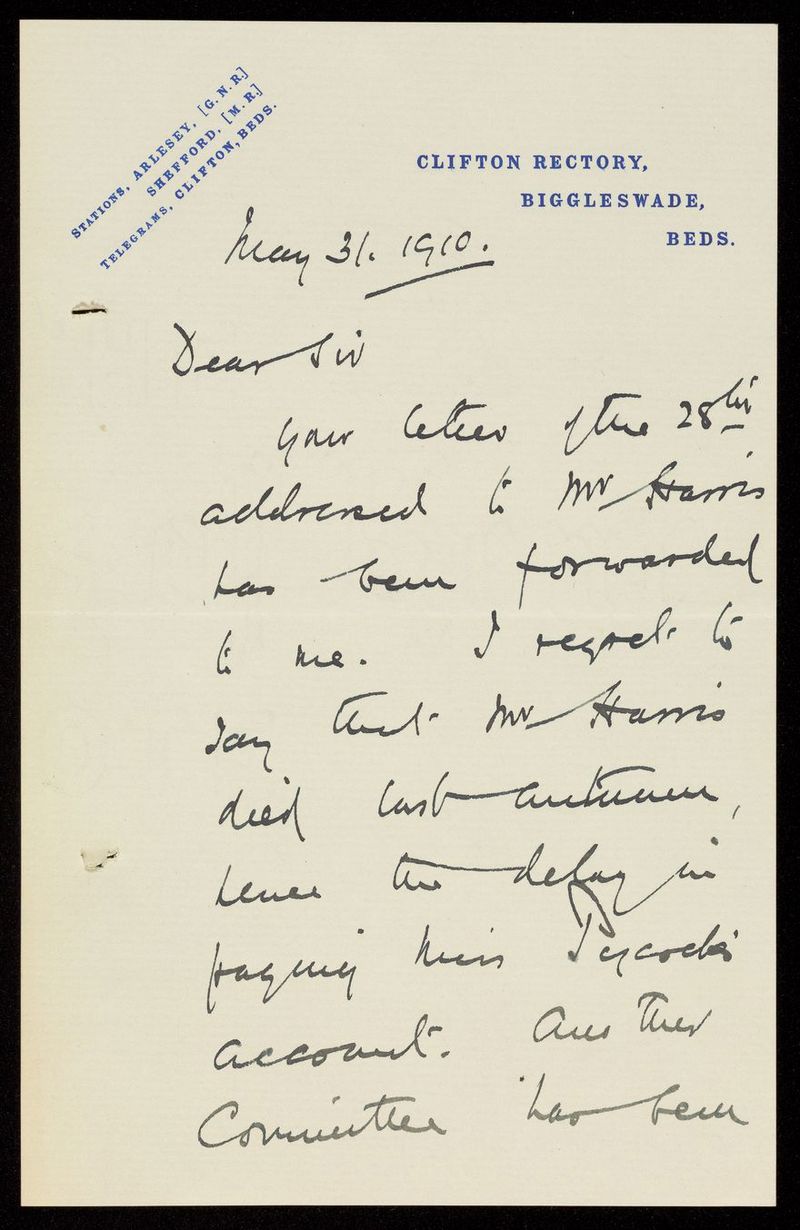 STATIONS, ARLESEY, [G.N.R.]
SHEFFORD, [M.R.]
TELEGRAMS, CLIFTON, BEDS.
CLIFTON RECTORY,
BIGGLESWADE,
BEDS.
May 31. 1910.
Dear Sir
Your letter of the 28th
addressed to Mr Harris
has been forwarded
to me. I regret to
say that Mr Harris
died last autumn,
hence the delay in
paying Miss
account. Another
Committee has been